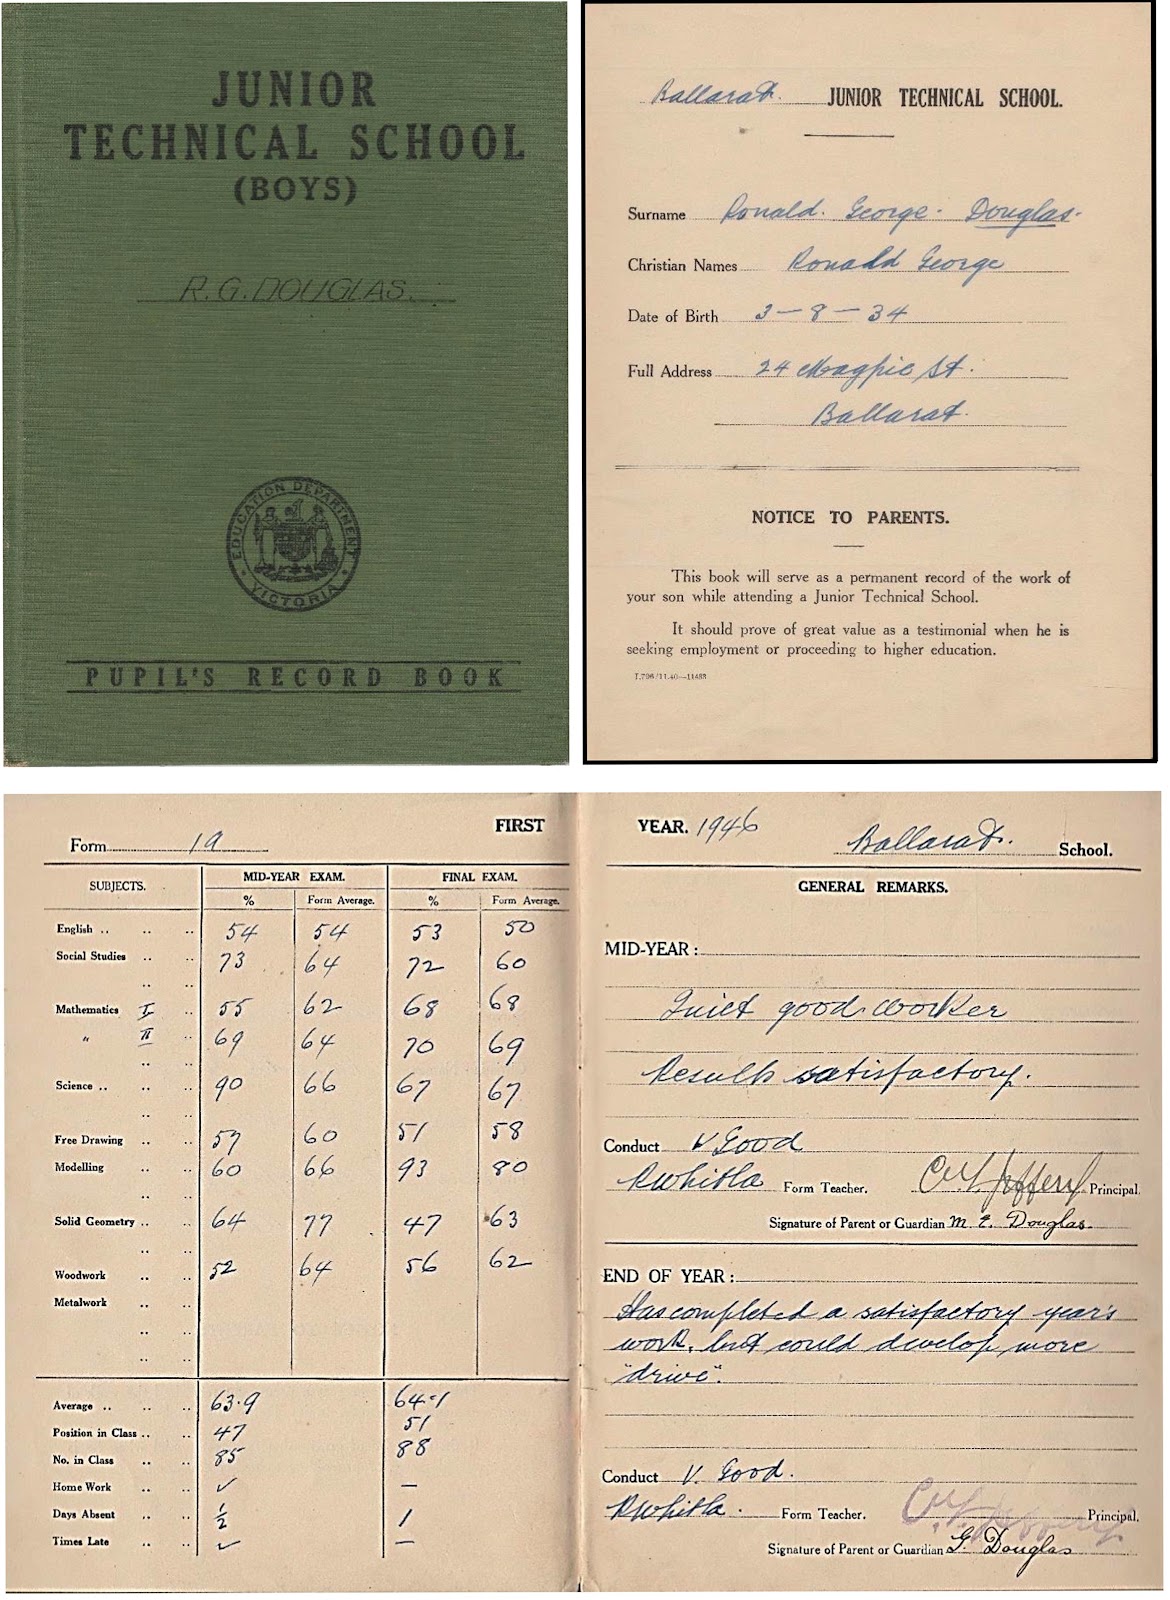 JUNIOR
TECHNICAL SCHOOL
(BOYS)
R. G. DOUGLAS.
EDUCATION DEPARTMENT
VICTORIA
PUPIL'S RECORD BOOK
Ballarat. JUNIOR TECHNICAL SCHOOL.
Surname Ronald. George. Douglas.
Christian Names Ronald George
Date of Birth 3 — 8 — 34
Full Address 24 Magpie St.
Ballarat.
NOTICE TO PARENTS.
This book will serve as a permanent record of the work of
your son while attending a Junior Technical School.
It should prove of great value as a testimonial when he is
seeking employment or proceeding to higher education.
Form 1a FIRST
SUBJECTS. MID-YEAR EXAM. FINAL EXAM.
% Form Average. % Form Average.
English .. .. .. 54 54 53 50
Social Studies .. .. 73 64 72 60
Mathematics I .. 55 62 68 68
" II .. 69 64 70 69
Science .. .. .. 90 66 67 67
Free Drawing .. .. 57 60 51 58
Modelling .. .. 60 66 93 80
Solid Geometry .. .. 64 77 47 63
Woodwork .. .. 52 64 56 62
Metalwork .. ..
Average .. .. .. 63.9 64.1
Position in Class .. .. 47 51
No. in Class .. .. 85 88
Home Work .. .. ✓ —
Days Absent .. .. ½ 1
Times Late .. .. ✓ —
YEAR. 1946 Ballarat. School.
GENERAL REMARKS.
MID-YEAR:
Quiet good worker
Results satisfactory.
Conduct V Good
Form Teacher. Principal.
Signature of Parent or Guardian M. E. Douglas.
END OF YEAR:
Has completed a satisfactory year's
work, but could develop more
"drive".
Conduct V. Good.
Form Teacher. Principal.
Signature of Parent or Guardian G. Douglas